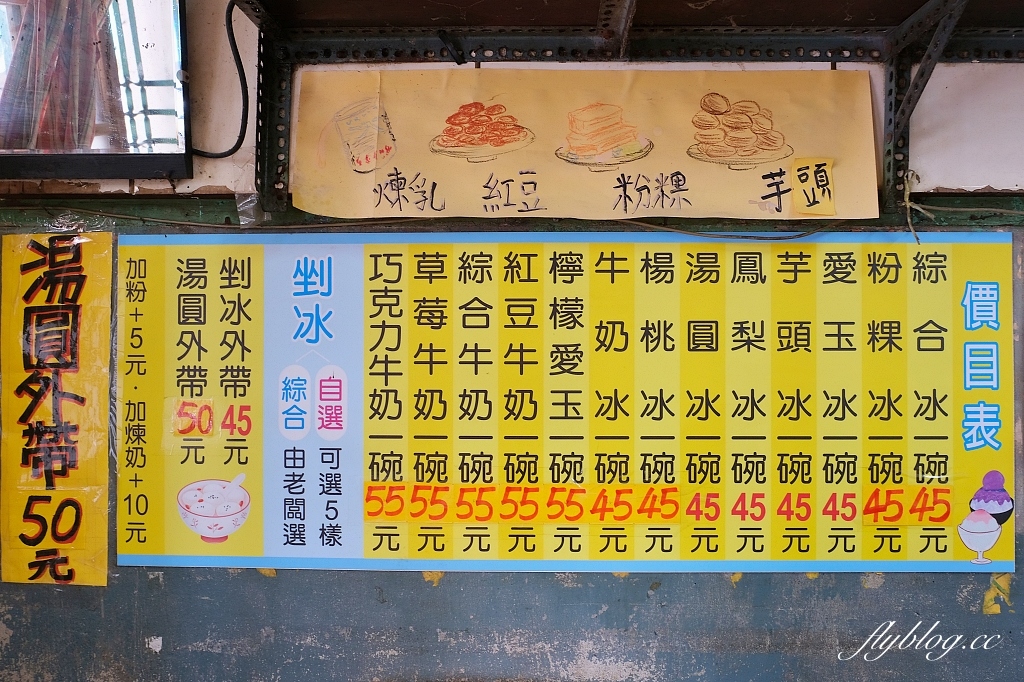 煉乳 紅豆 粉粿 芋頭
價目表
綜合冰一碗45元
粉粿冰一碗45元
愛玉冰一碗45元
芋頭冰一碗45元
鳳梨冰一碗45元
湯圓冰一碗45元
楊桃冰一碗45元
牛奶冰一碗45元
檸檬愛玉一碗55元
紅豆牛奶一碗55元
綜合牛奶一碗55元
草莓牛奶一碗55元
巧克力牛奶一碗55元
剉冰
自選 可選5樣
綜合 由老闆選
剉冰外帶45元
湯圓外帶50元
加粉+5元·加煉奶+10元
湯圓外帶50元
flyblog.cc